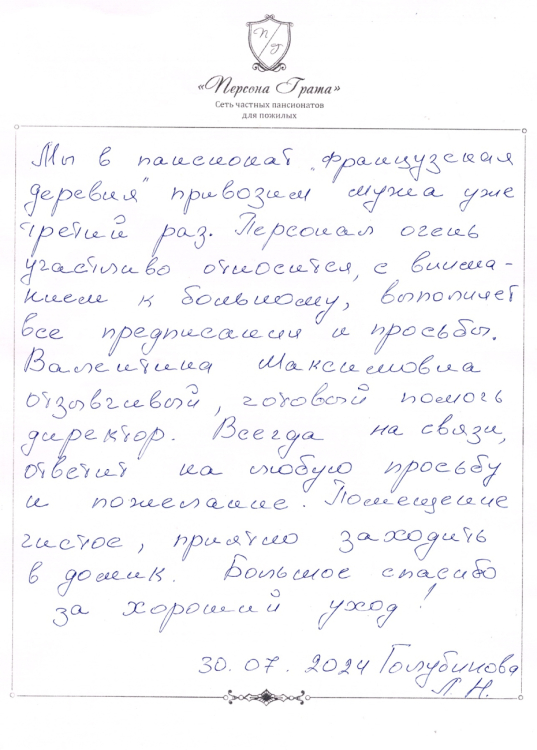 П
Г
«Персона Грата»
Сеть частных пансионатов
для пожилых
Мы в пансионат „Французская
деревня" привозим мужа уже
третий раз. Персонал очень
участливо относится, с внима-
нием к больному, выполняет
все предписания и просьбы.
Валентина Максимовна
отзывчивый, готовый помочь
директор. Всегда на связи,
ответит на любую просьбу
и пожелание. Помещение
чистое, приятно заходить
в домик. Большое спасибо
за хороший уход!
30.07.2024 Голубинова
Л. Н.